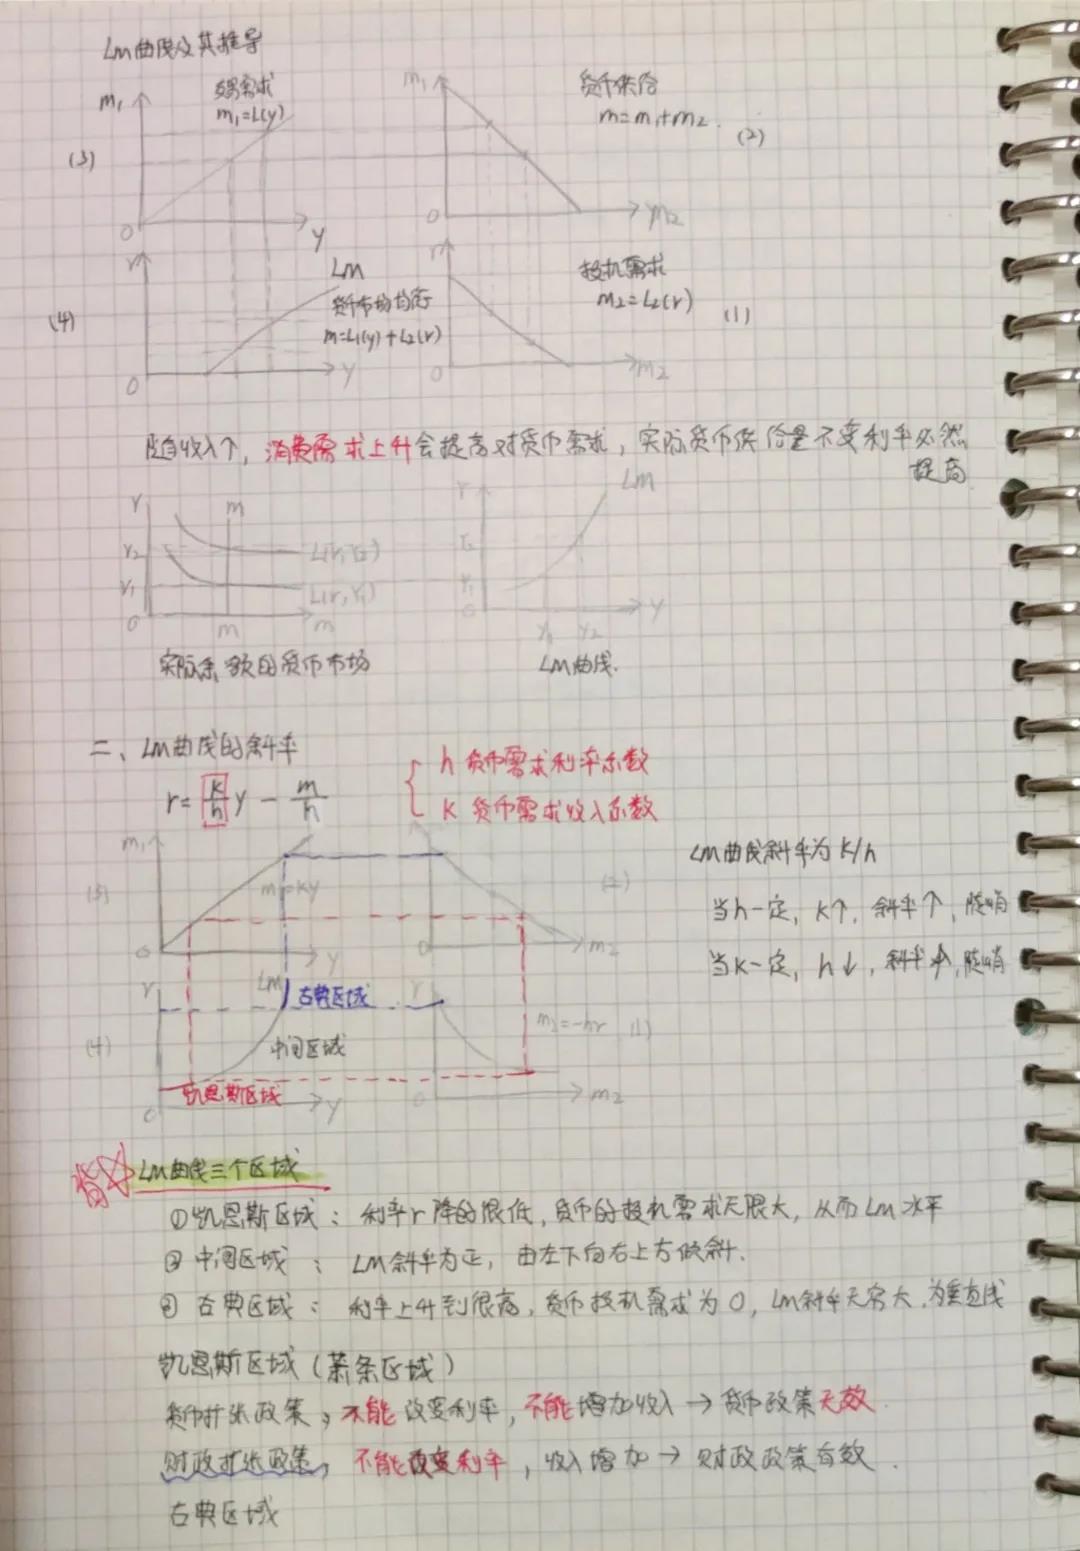 LM曲线及其推导
m₁ 交易需求 m₁ 货币供给
m₁=L(y) m=m₁+m₂ (2)
(3)
0 y 0 m₂
r LM r 投机需求
货币市场均衡 m₂=L₂(r) (1)
(4) m=L₁(y)+L₂(r)
0 y 0 m₂
随着收入↑,消费需求上升会提高对货币需求,实际货币供给量不变利率必然
提高
r m r LM
r₂ L(r,Y₂) r₂
r₁ L(r,Y₁) r₁
0 m m 0 Y₁ Y₂ y
实际余额的货币市场 LM曲线.
二、LM曲线的斜率
r=k/h y-m/h
h 货币需求利率系数
k 货币需求收入系数
m₁ LM曲线斜率为k/h
(3) m₁=ky (2) 当h一定,k↑,斜率↑,陡峭
0 y 0 m₂ 当k一定,h↓,斜率↑,陡峭
r LM 古典区域 r
(4) 中间区域 m₂=-hr (1)
凯恩斯区域
0 y 0 m₂
背 LM曲线三个区域
①凯恩斯区域:利率r降的很低,货币的投机需求无限大,从而LM水平
②中间区域:LM斜率为正,由左下向右上方倾斜.
③古典区域:利率上升到很高,货币投机需求为0,LM斜率无穷大,为垂直线
凯恩斯区域(萧条区域)
货币扩张政策,不能改变利率,不能增加收入→货币政策无效.
财政扩张政策,不能改变利率,收入增加→财政政策有效.
古典区域